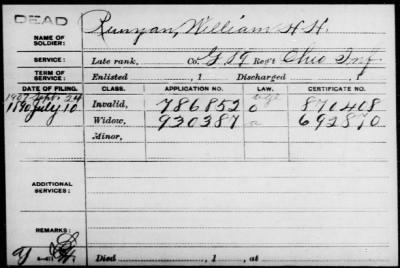 DEAD
NAME OF SOLDIER: Runyan, William H. H.
SERVICE: Late rank, Co. G 57 Reg't Ohio Inf
TERM OF SERVICE: Enlisted , 1 Discharged , 1
DATE OF FILING. CLASS. APPLICATION NO. LAW. CERTIFICATE NO.
1907 Sept. 24 Invalid, 786852 870408
1890 July 10 Widow, 920387 a 692870
Minor,
ADDITIONAL SERVICES:
REMARKS:
Died , 1 , at